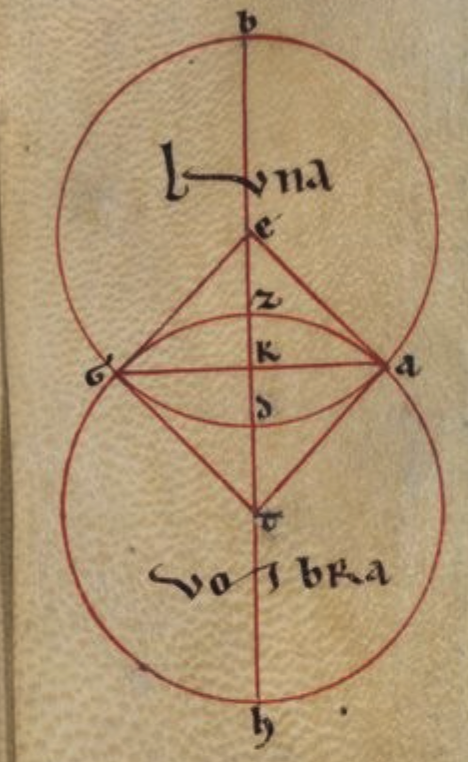 b
lvna
e
z
k
g a
d
t
vmbra
h